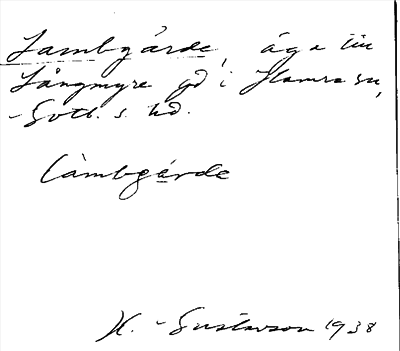 Lambgårde, äga till
Långmyre gd i Hamra sn,
Gotl. s. hd.
làmbgárde
H. Gustavson 1938